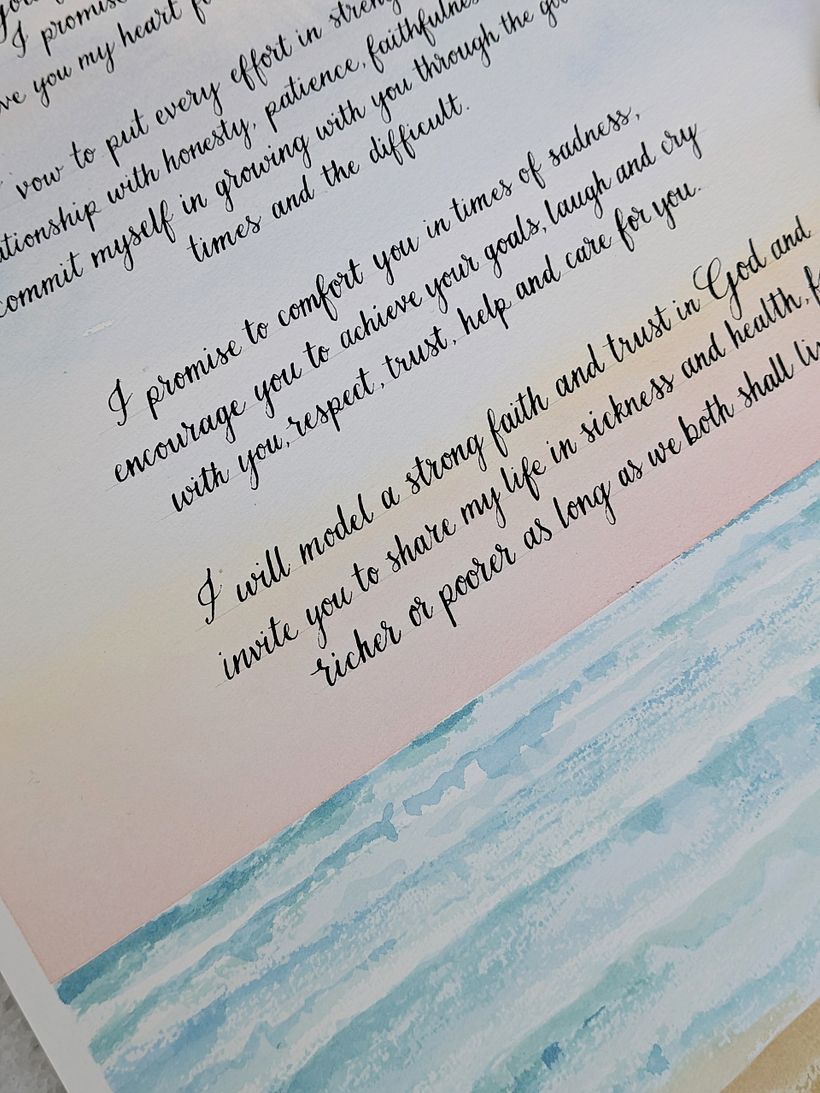 I promise
you my heart
vow to put every effort in
with honesty, patience,
commit myself in growing with you through the
times and the difficult.
I promise to comfort you in times of sadness,
encourage you to achieve your goals, laugh and cry
with you, respect, trust, help and care for you.
I will model a strong faith and trust in God and
invite you to share my life in sickness and health,
richer or poorer as long as we both shall